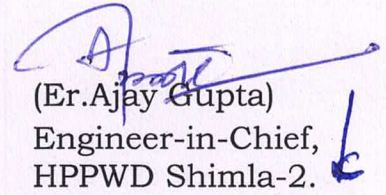 (Er.Ajay Gupta)
Engineer-in-Chief,
HPPWD Shimla-2.